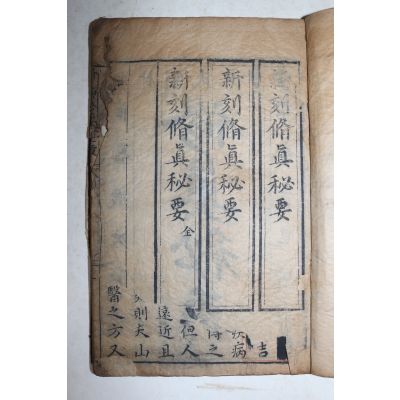 新刻脩眞秘要
新刻脩眞秘要
新刻脩眞秘要 全
吉
病
得之
但人
遠近且
則夫山
醫之方又